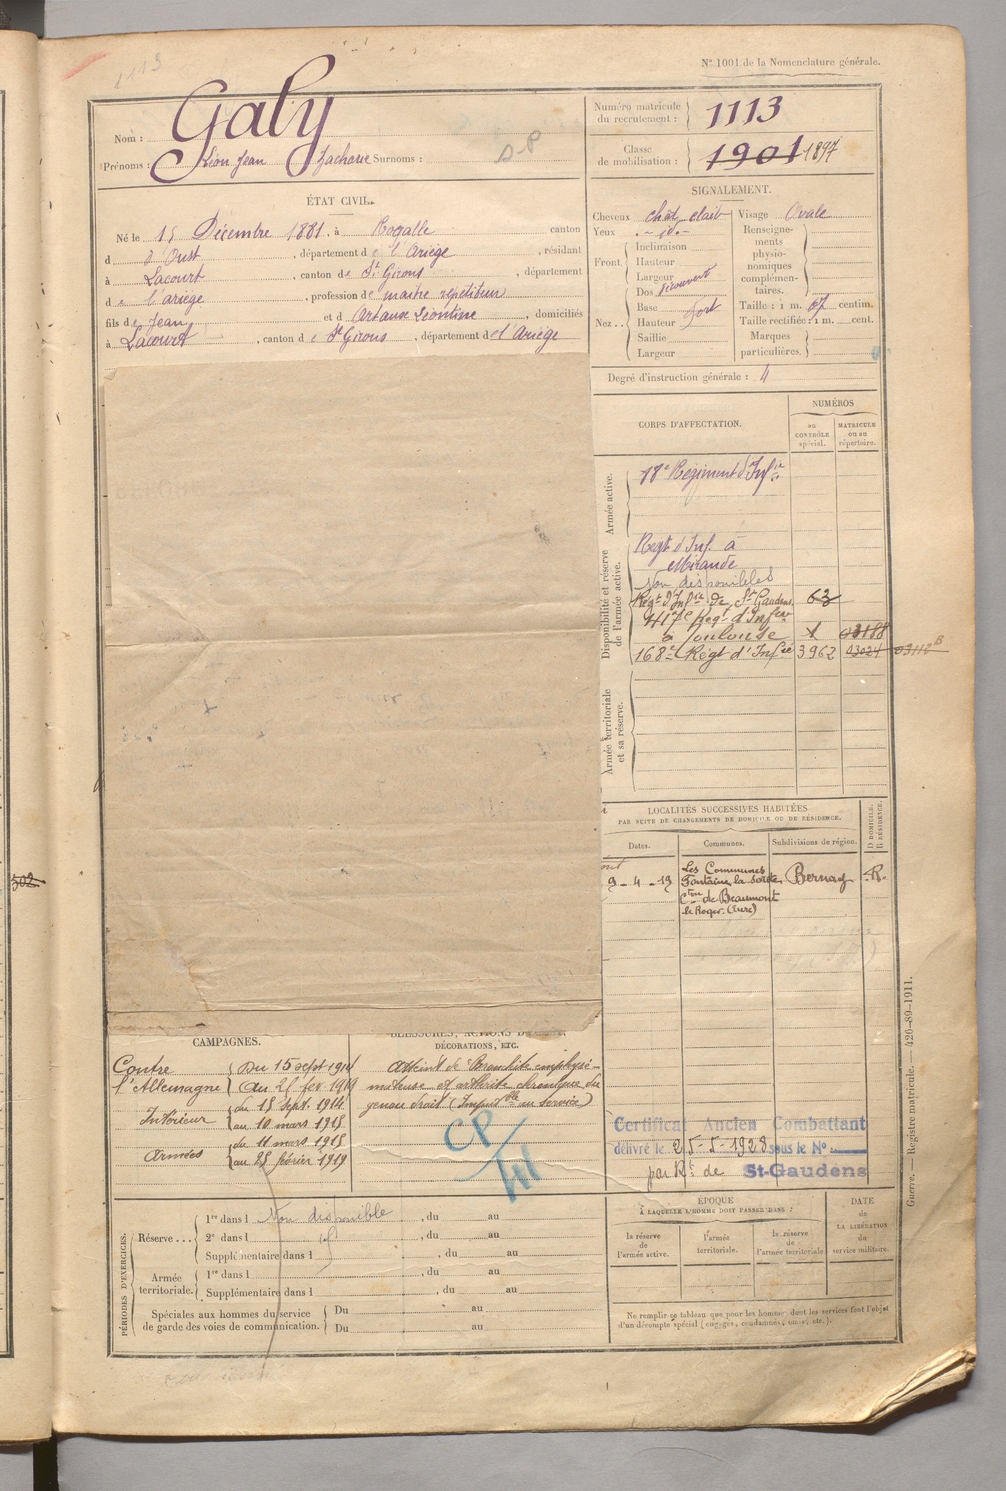 N° 1001 de la Nomenclature générale.
1113
Nom : Galy
Prénoms : Léon Jean Zacharie Surnoms :
Numéro matricule du recrutement : 1113
Classe de mobilisation : 1901 1897
ÉTAT CIVIL.
Né le 15 Décembre 1881, à Rogalle canton
d à Oust, département de l'Ariège, résidant
à Lacourt, canton de St Girons, département
de l'ariège, profession de maitre répétiteur
fils de Jean et d Artaux Léontine, domiciliés
à Lacourt, canton de St Girons, département de l'Ariège
SIGNALEMENT.
Cheveux chat clair
Yeux -id-
Front. Inclinaison
Hauteur
Largeur
Nez.. Dos
Base fort
Hauteur
Saillie
Largeur
Visage Ovale
Renseignements physionomiques complémentaires.
Taille : 1 m. 67 centim.
Taille rectifiée : 1 m. cent.
Marques particulières.
Degré d'instruction générale : 4
CORPS D'AFFECTATION.
NUMÉROS
au CONTRÔLE spécial.
MATRICULE ou au répertoire.
Armée active.
18e Régiment d'Infie
Disponibilité et réserve de l'armée active.
Regt d'Inf. à
Mirande
Non disponibles
Regt d'Infie de St Gaudens 63
417e Regt d'Infie
à Toulouse 03188
168e Régt d'Infie 3962 03024 03118 B
Armée territoriale et sa réserve.
LOCALITÉS SUCCESSIVES HABITÉES
PAR SUITE DE CHANGEMENTS DE DOMICILE OU DE RÉSIDENCE.
Dates. Communes. Subdivisions de région. D DOMICILE. R RÉSIDENCE.
9-4-19 Les Communes Bernay R.
Fontaine la Sorêt
Cton de Beaumont
le Roger. (Eure)
CAMPAGNES.
Contre l'Allemagne
Du 15 sept 1914
au 25 fev 1919
Intérieur
du 15 Sept. 1914
au 10 mars 1915
Armées
du 11 mars 1915
au 25 février 1919
BLESSURES, ACTIONS D'
DÉCORATIONS, ETC.
Atteint de Bronchite emphysé-
mateuse et arthrite chronique du
genou droit (Imput ble au service)
CP
Certificat Ancien Combattant
délivré le 25-5-1928 sous le N°
par Rt de St-Gaudens
PÉRIODES D'EXERCICES.
Réserve... 1re dans l Non disponible, du au
2e dans l, du au
Supplémentaire dans l, du au
Armée territoriale. 1re dans l, du au
Supplémentaire dans l, du au
Spéciales aux hommes du service
de garde des voies de communication.
Du au
Du au
ÉPOQUE
À LAQUELLE L'HOMME DOIT PASSER DANS :
la réserve de l'armée active.
l'armée territoriale.
la réserve de l'armée territoriale
DATE de LA LIBÉRATION du service militaire.
Ne remplir ce tableau que pour les hommes dont les services font l'objet
d'un décompte spécial (engagés, condamnés, omis, etc.).
Guerre. — Registre matricule. — 426-89-1911.
502